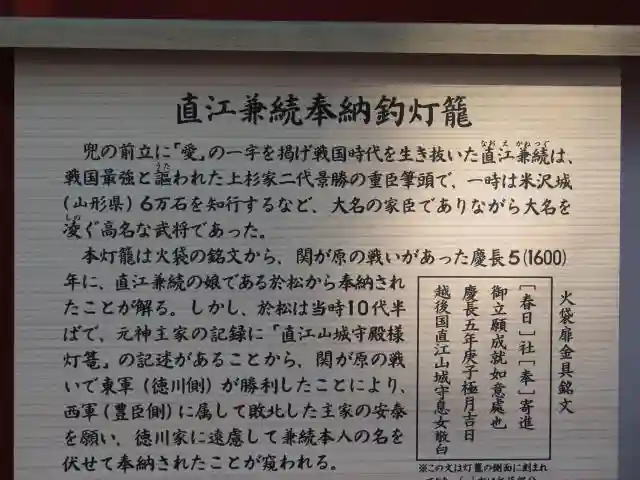 直江兼続奉納釣灯籠
兜の前立に「愛」の一字を掲げ戦国時代を生き抜いた直江兼続は、
戦国最強と謳われた上杉家二代景勝の重臣筆頭で、一時は米沢城
(山形県)6万石を知行するなど、大名の家臣でありながら大名を
凌ぐ高名な武将であった。
本灯籠は火袋の銘文から、関が原の戦いがあった慶長5(1600)
年に、直江兼続の娘である於松から奉納され
たことが解る。しかし、於松は当時10代半
ばで、元神主家の記録に「直江山城守殿様
灯篭」の記述があることから、関が原の戦
いで東軍(徳川側)が勝利したことにより、
西軍(豊臣側)に属して敗北した主家の安泰
を願い、徳川家に遠慮して兼続本人の名を
伏せて奉納されたことが窺われる。
火袋扉金具銘文
[春日]社[奉]寄進
御立願成就如意處也
慶長五年庚子極月吉日
越後国直江山城守息女敬白
※この文は灯籠の側面に刻まれ